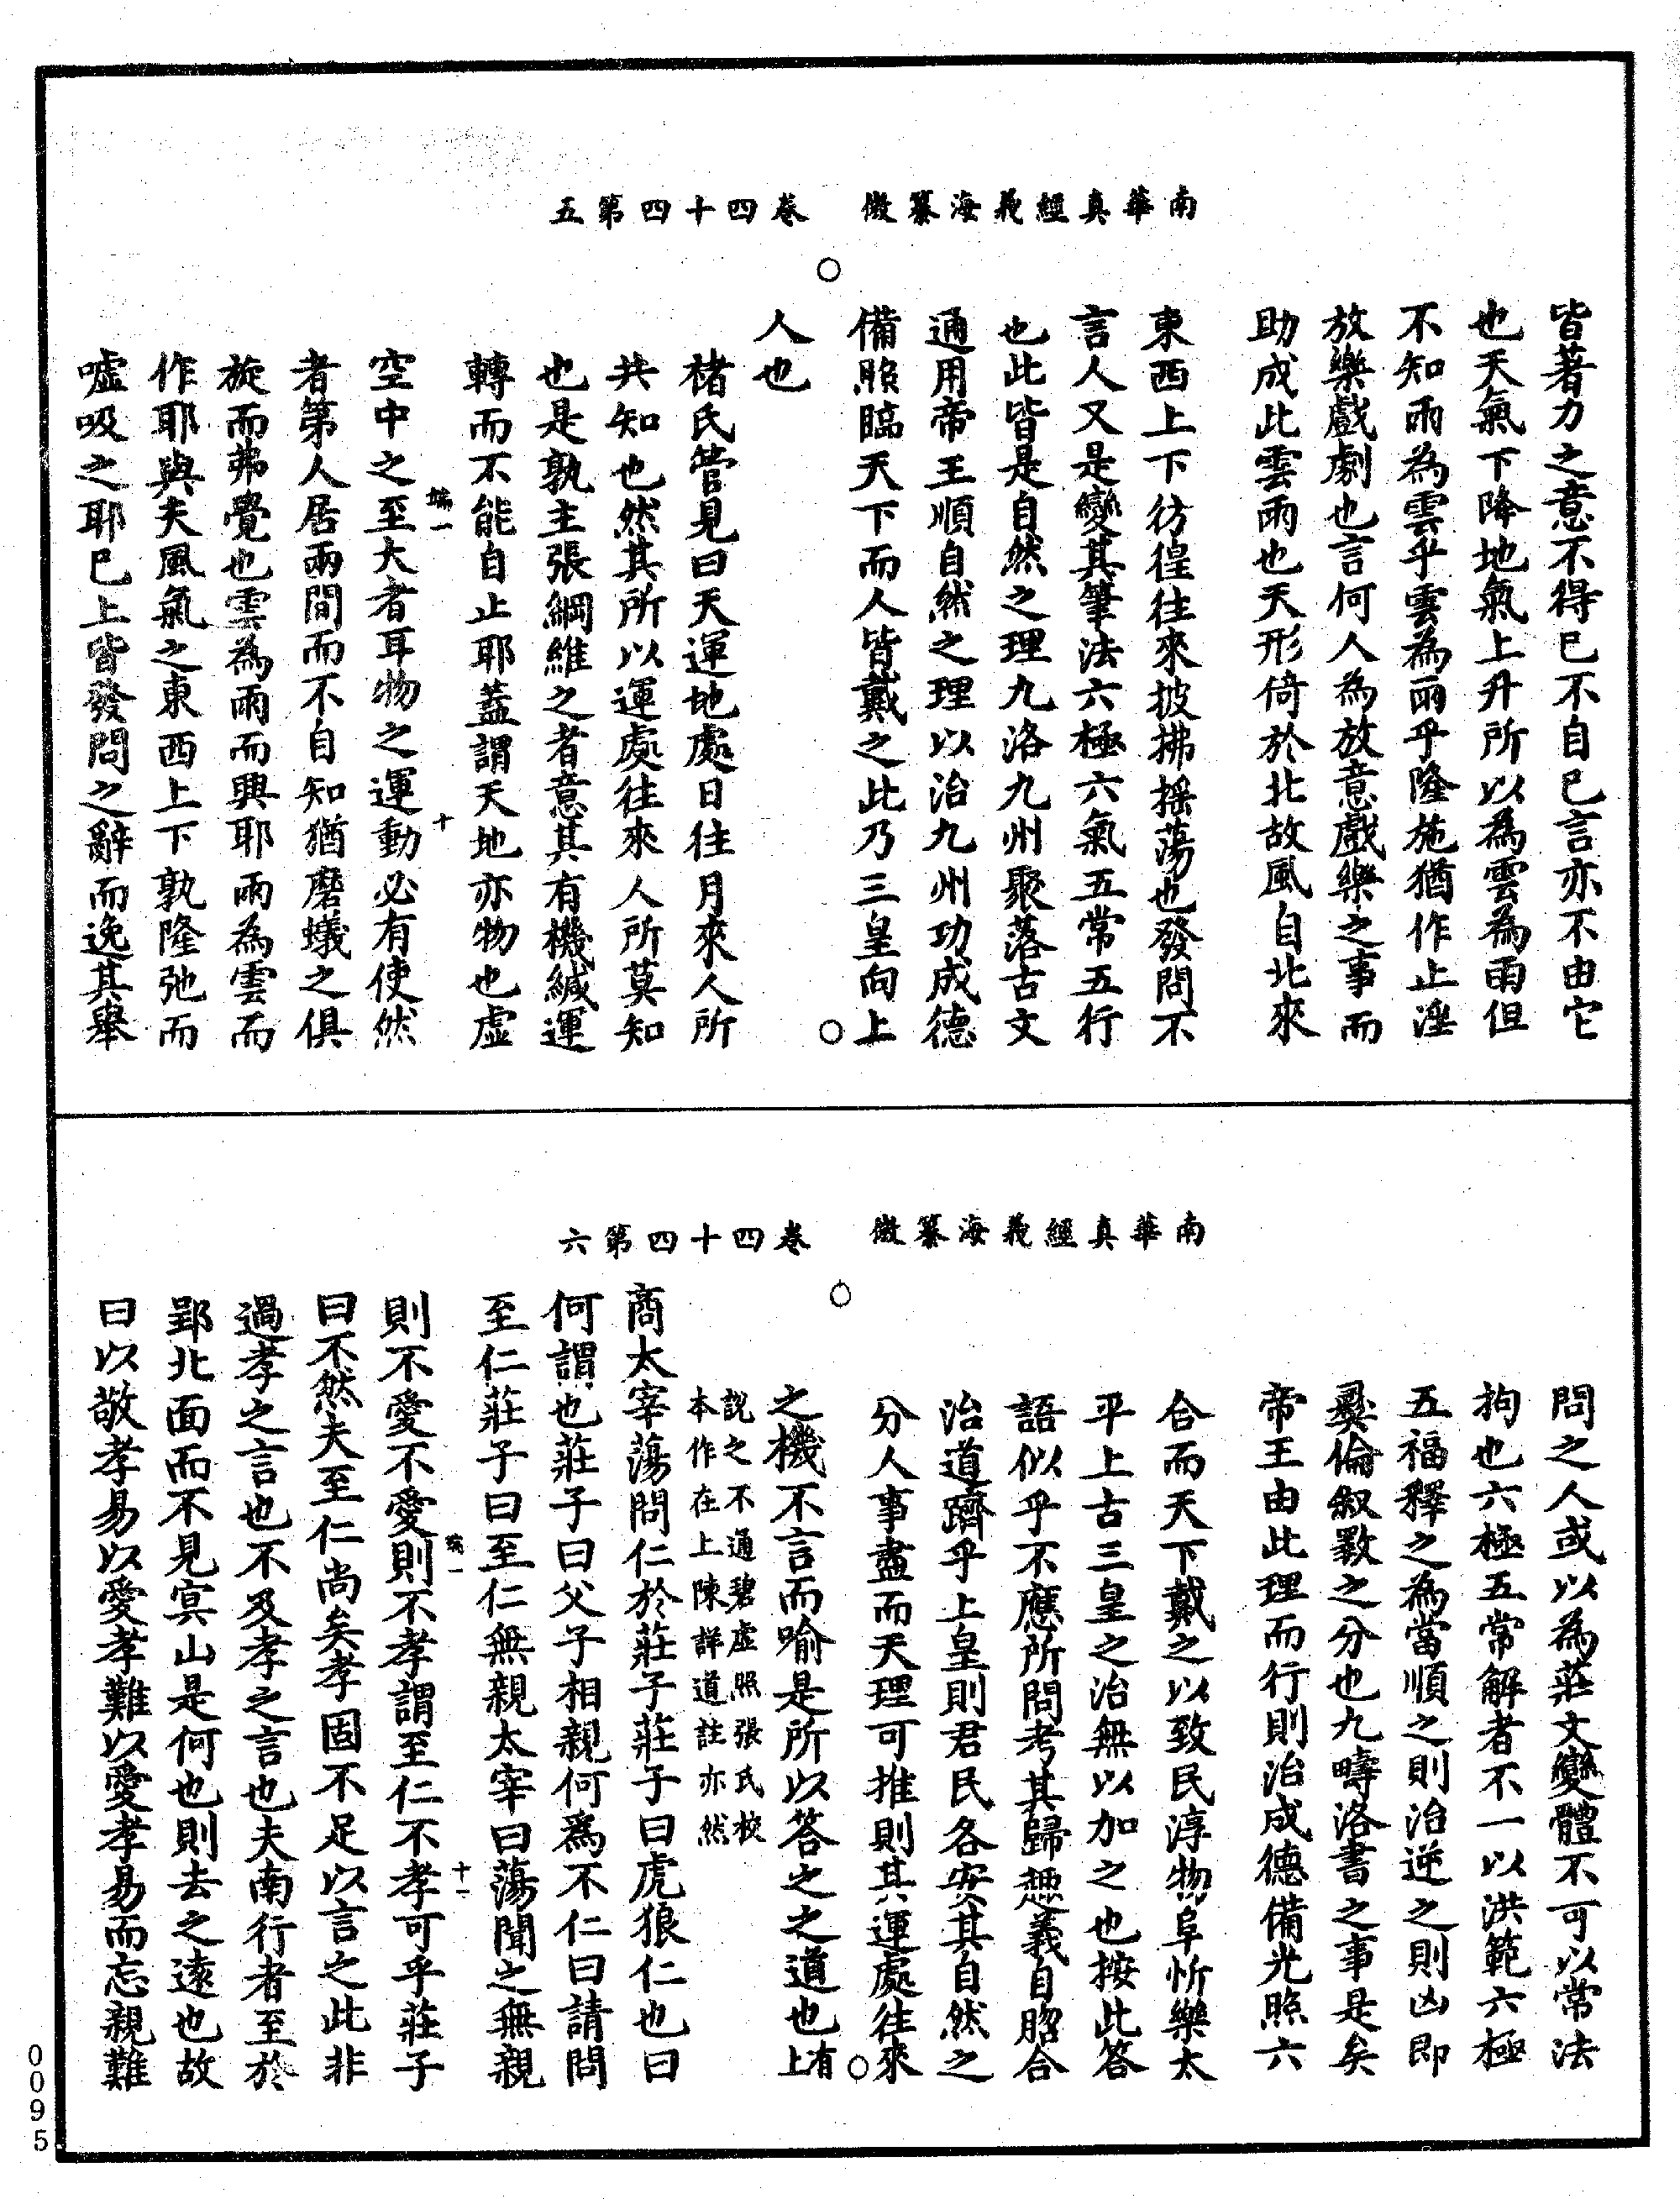 南華真經義海纂微　卷四十四第五
皆著力之意不得已不自已言亦不由它
也天氣下降地氣上升所以為雲為雨但
不知雨為雲乎雲為雨乎隆施猶作止淫
放樂戲劇也言何人為放意戲樂之事而
助成此雲雨也天形倚於北故風自北來
東西上下彷徨往來披拂摇蕩也發問不
言人又是變其筆法六極六氣五常五行
也此皆是自然之理九洛九州聚落古文
通用帝王順自然之理以治九州功成德
備照臨天下而人皆戴之此乃三皇向上
人也
褚氏管見曰天運地處日往月來人所
共知也然其所以運處往來人所莫知
也是孰主張綱維之者意其有機緘運
轉而不能自止耶蓋謂天地亦物也虛
端一　十
空中之至大者耳物之運動必有使然
者第人居兩間而不自知猶磨蟻之俱
旋而弗覺也雲為雨而興耶雨為雲而
作耶與夫風氣之東西上下孰隆弛而
噓吸之耶已上皆發問之辭而逸其舉
南華真經義海纂微　卷四十四第六
問之人或以為莊文變體不可以常法
拘也六極五常解者不一以洪範六極
五福釋之為當順之則治逆之則凶即
彝倫叙斁之分也九疇洛書之事是矣
帝王由此理而行則治成德備光照六
合而天下戴之以致民淳物阜忻樂太
平上古三皇之治無以加之也按此答
語似乎不應所問考其歸趣義自脗合
治道躋乎上皇則君民各安其自然之
分人事盡而天理可推則其運處往來
之機不言而喻是所以答之之道也有上
說之不通碧虛照張氏校
本作在上陳詳道註亦然
商太宰蕩問仁於莊子莊子曰虎狼仁也曰
何謂也莊子曰父子相親何為不仁曰請問
至仁莊子曰至仁無親太宰曰蕩聞之無親
端一　十一
則不愛不愛則不孝謂至仁不孝可乎莊子
曰不然夫至仁尚矣孝固不足以言之此非
過孝之言也不及孝之言也夫南行者至於
郢北面而不見冥山是何也則去之遠也故
曰以敬孝易以愛孝難以愛孝易而忘親難
0095